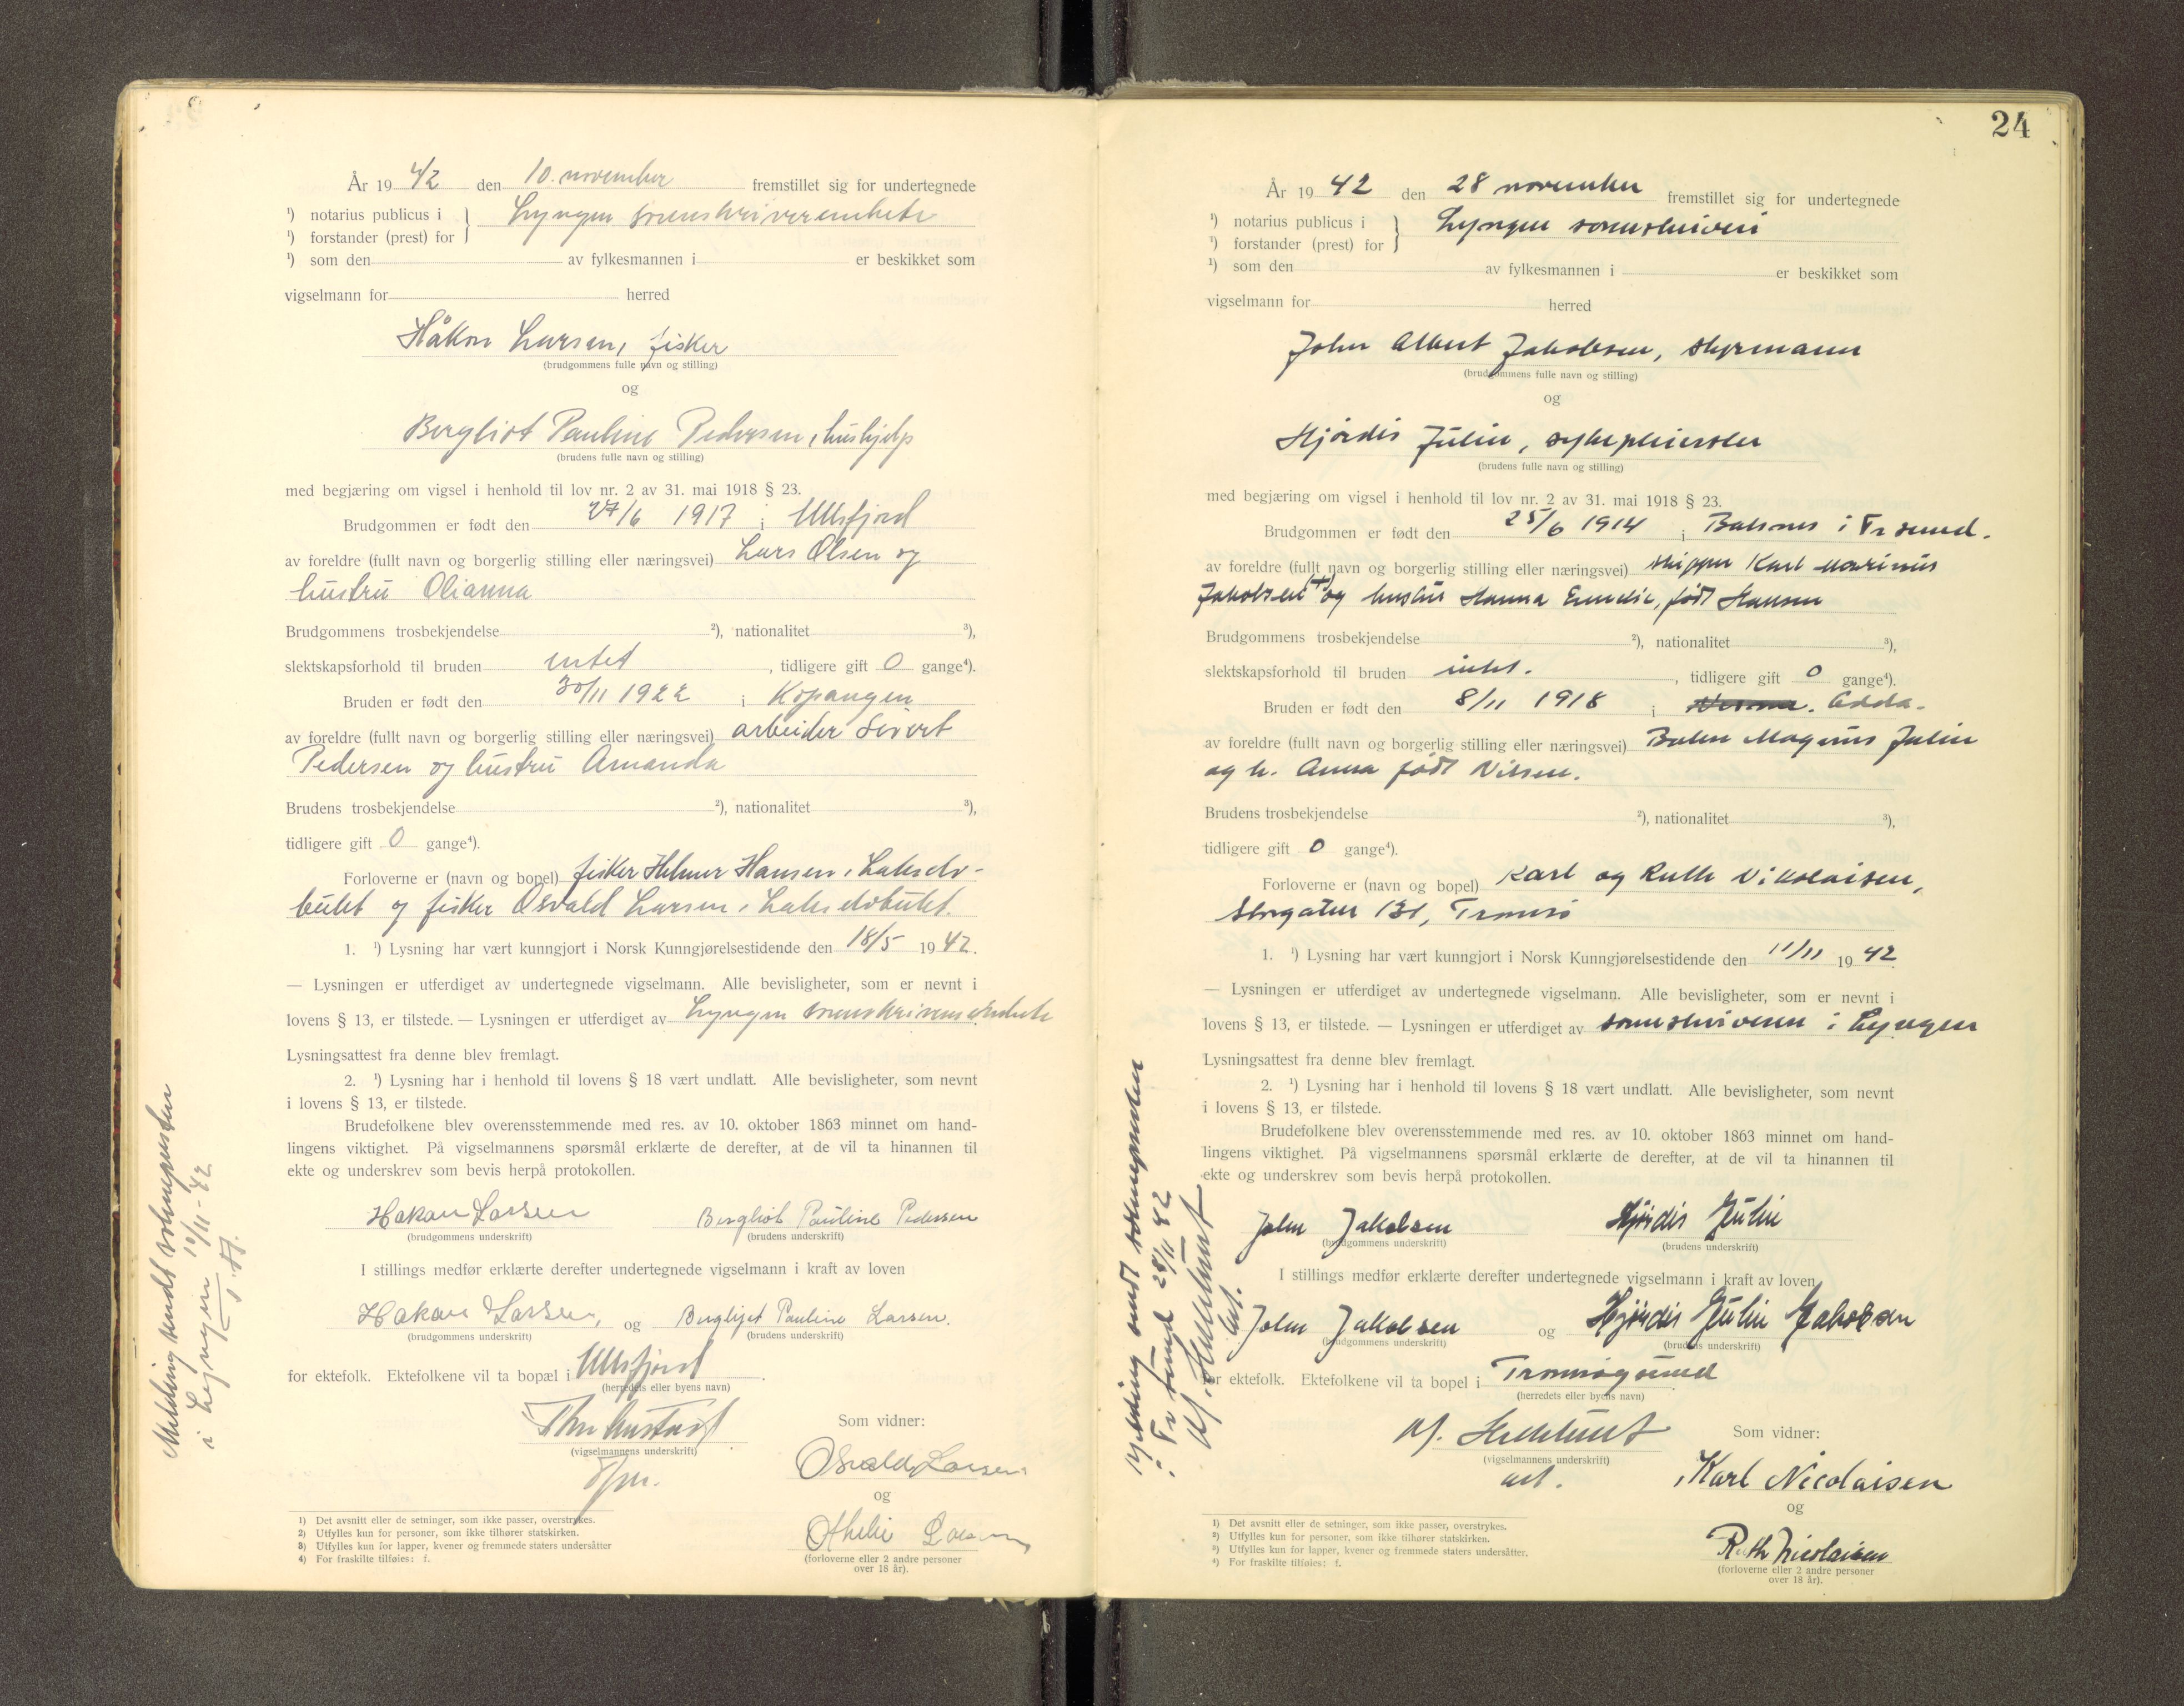 År 19 42 den 10. november fremstillet sig for undertegnede
¹) notarius publicus i } Lyngen sorenskriverembete
¹) forstander (prest) for
¹) som den av fylkesmannen i er beskikket som
vigselmann for herred
Håkon Larsen, fisker
(brudgommens fulle navn og stilling)
og
Bergliot Pauline Pedersen, hushjelp
(brudens fulle navn og stilling)
med begjæring om vigsel i henhold til lov nr. 2 av 31. mai 1918 § 23.
Brudgommen er født den 27/6 1917 i Ullsfjord
av foreldre (fullt navn og borgerlig stilling eller næringsvei) Lars Olsen og
hustru Olianna
Brudgommens trosbekjendelse ²), nationalitet ³),
slektskapsforhold til bruden intet, tidligere gift 0 gange⁴).
Bruden er født den 30/11 1922 i Kopangen
av foreldre (fullt navn og borgerlig stilling eller næringsvei) arbeider Sivert
Pedersen og hustru Amanda
Brudens trosbekjendelse ²), nationalitet ³),
tidligere gift 0 gange⁴).
Forloverne er (navn og bopel) fisker Helmer Hansen, Lakselv-
bukt og fisker Osvald Larsen, Lakselvbukt.
1. ¹) Lysning har vært kunngjort i Norsk Kunngjørelsestidende den 18/5 1942.
— Lysningen er utferdiget av undertegnede vigselmann. Alle bevisligheter, som er nevnt i
lovens § 13, er tilstede. — Lysningen er utferdiget av Lyngen sorenskriverembete
Lysningsattest fra denne blev fremlagt.
2. ¹) Lysning har i henhold til lovens § 18 vært undlatt. Alle bevisligheter, som nevnt
i lovens § 13, er tilstede.
Brudefolkene blev overensstemmende med res. av 10. oktober 1863 minnet om hand-
lingens viktighet. På vigselmannens spørsmål erklærte de derefter, at de vil ta hinannen til
ekte og underskrev som bevis herpå protokollen.
Håkon Larsen Bergliot Pauline Pedersen
(brudgommens underskrift) (brudens underskrift)
I stillings medfør erklærte derefter undertegnede vigselmann i kraft av loven
Håkon Larsen, og Bergliot Pauline Larsen.
(brudgommens underskrift) (brudens underskrift)
for ektefolk. Ektefolkene vil ta bopæl i Ullsfjord.
(herredets eller byens navn)
Som vidner:
(vigselmannens underskrift)
Osvald Larsen
og
Othelie Larsen
(forloverne eller 2 andre personer
over 18 år).
1) Det avsnitt eller de setninger, som ikke passer, overstrykes.
2) Utfylles kun for personer, som ikke tilhører statskirken.
3) Utfylles kun for lapper, kvener og fremmede staters undersåtter
4) For fraskilte tilføies: f.
Melding sendt soknepresten
i Lyngen 10/11-42
24
År 19 42 den 28 november fremstillet sig for undertegnede
¹) notarius publicus i } Lyngen sorenskriveri
¹) forstander (prest) for
¹) som den av fylkesmannen i er beskikket som
vigselmann for herred
John Albert Jakobsen, styrmann
(brudgommens fulle navn og stilling)
og
Hjørdis Julin, sykepleierske
(brudens fulle navn og stilling)
med begjæring om vigsel i henhold til lov nr. 2 av 31. mai 1918 § 23.
Brudgommen er født den 25/6 1914 i Balsnes i Tr sund.
av foreldre (fullt navn og borgerlig stilling eller næringsvei) skipper Karl Marinius
Jakobsen (+) og hustru Hanna Emelie, født Hansen
Brudgommens trosbekjendelse ²), nationalitet ³),
slektskapsforhold til bruden intet., tidligere gift 0 gange⁴).
Bruden er født den 8/11 1918 i Adda.
av foreldre (fullt navn og borgerlig stilling eller næringsvei) Magnus Julin
og h. Anna født Nilsen.
Brudens trosbekjendelse ²), nationalitet ³),
tidligere gift 0 gange⁴).
Forloverne er (navn og bopel) Karl og Ruth Nikolaisen,
Storgaten 131, Tromsø
1. ¹) Lysning har vært kunngjort i Norsk Kunngjørelsestidende den 11/11 1942
— Lysningen er utferdiget av undertegnede vigselmann. Alle bevisligheter, som er nevnt i
lovens § 13, er tilstede. — Lysningen er utferdiget av sorenskriveren i Lyngen
Lysningsattest fra denne blev fremlagt.
2. ¹) Lysning har i henhold til lovens § 18 vært undlatt. Alle bevisligheter, som nevnt
i lovens § 13, er tilstede.
Brudefolkene blev overensstemmende med res. av 10. oktober 1863 minnet om hand-
lingens viktighet. På vigselmannens spørsmål erklærte de derefter, at de vil ta hinannen til
ekte og underskrev som bevis herpå protokollen.
John Jakobsen Hjørdis Julin
(brudgommens underskrift) (brudens underskrift)
I stillings medfør erklærte derefter undertegnede vigselmann i kraft av loven
John Jakobsen og Hjørdis Julin Jakobsen
(brudgommens underskrift) (brudens underskrift)
for ektefolk. Ektefolkene vil ta bopel i Tromsøysund
(herredets eller byens navn)
Som vidner:
(vigselmannens underskrift)
ast.
Karl Nicolaisen
og
Ruth Nicolaisen
(forloverne eller 2 andre personer
over 18 år).
¹) Det avsnitt eller de setninger, som ikke passer, overstrykes.
²) Utfylles kun for personer, som ikke tilhører statskirken.
³) Utfylles kun for lapper, kvener og fremmede staters undersåtter.
⁴) For fraskilte tilføies: f.
Melding sendt soknepresten
i Tr sund 28/11 42
ast.